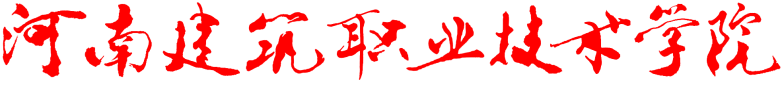 河南建筑职业技术学院